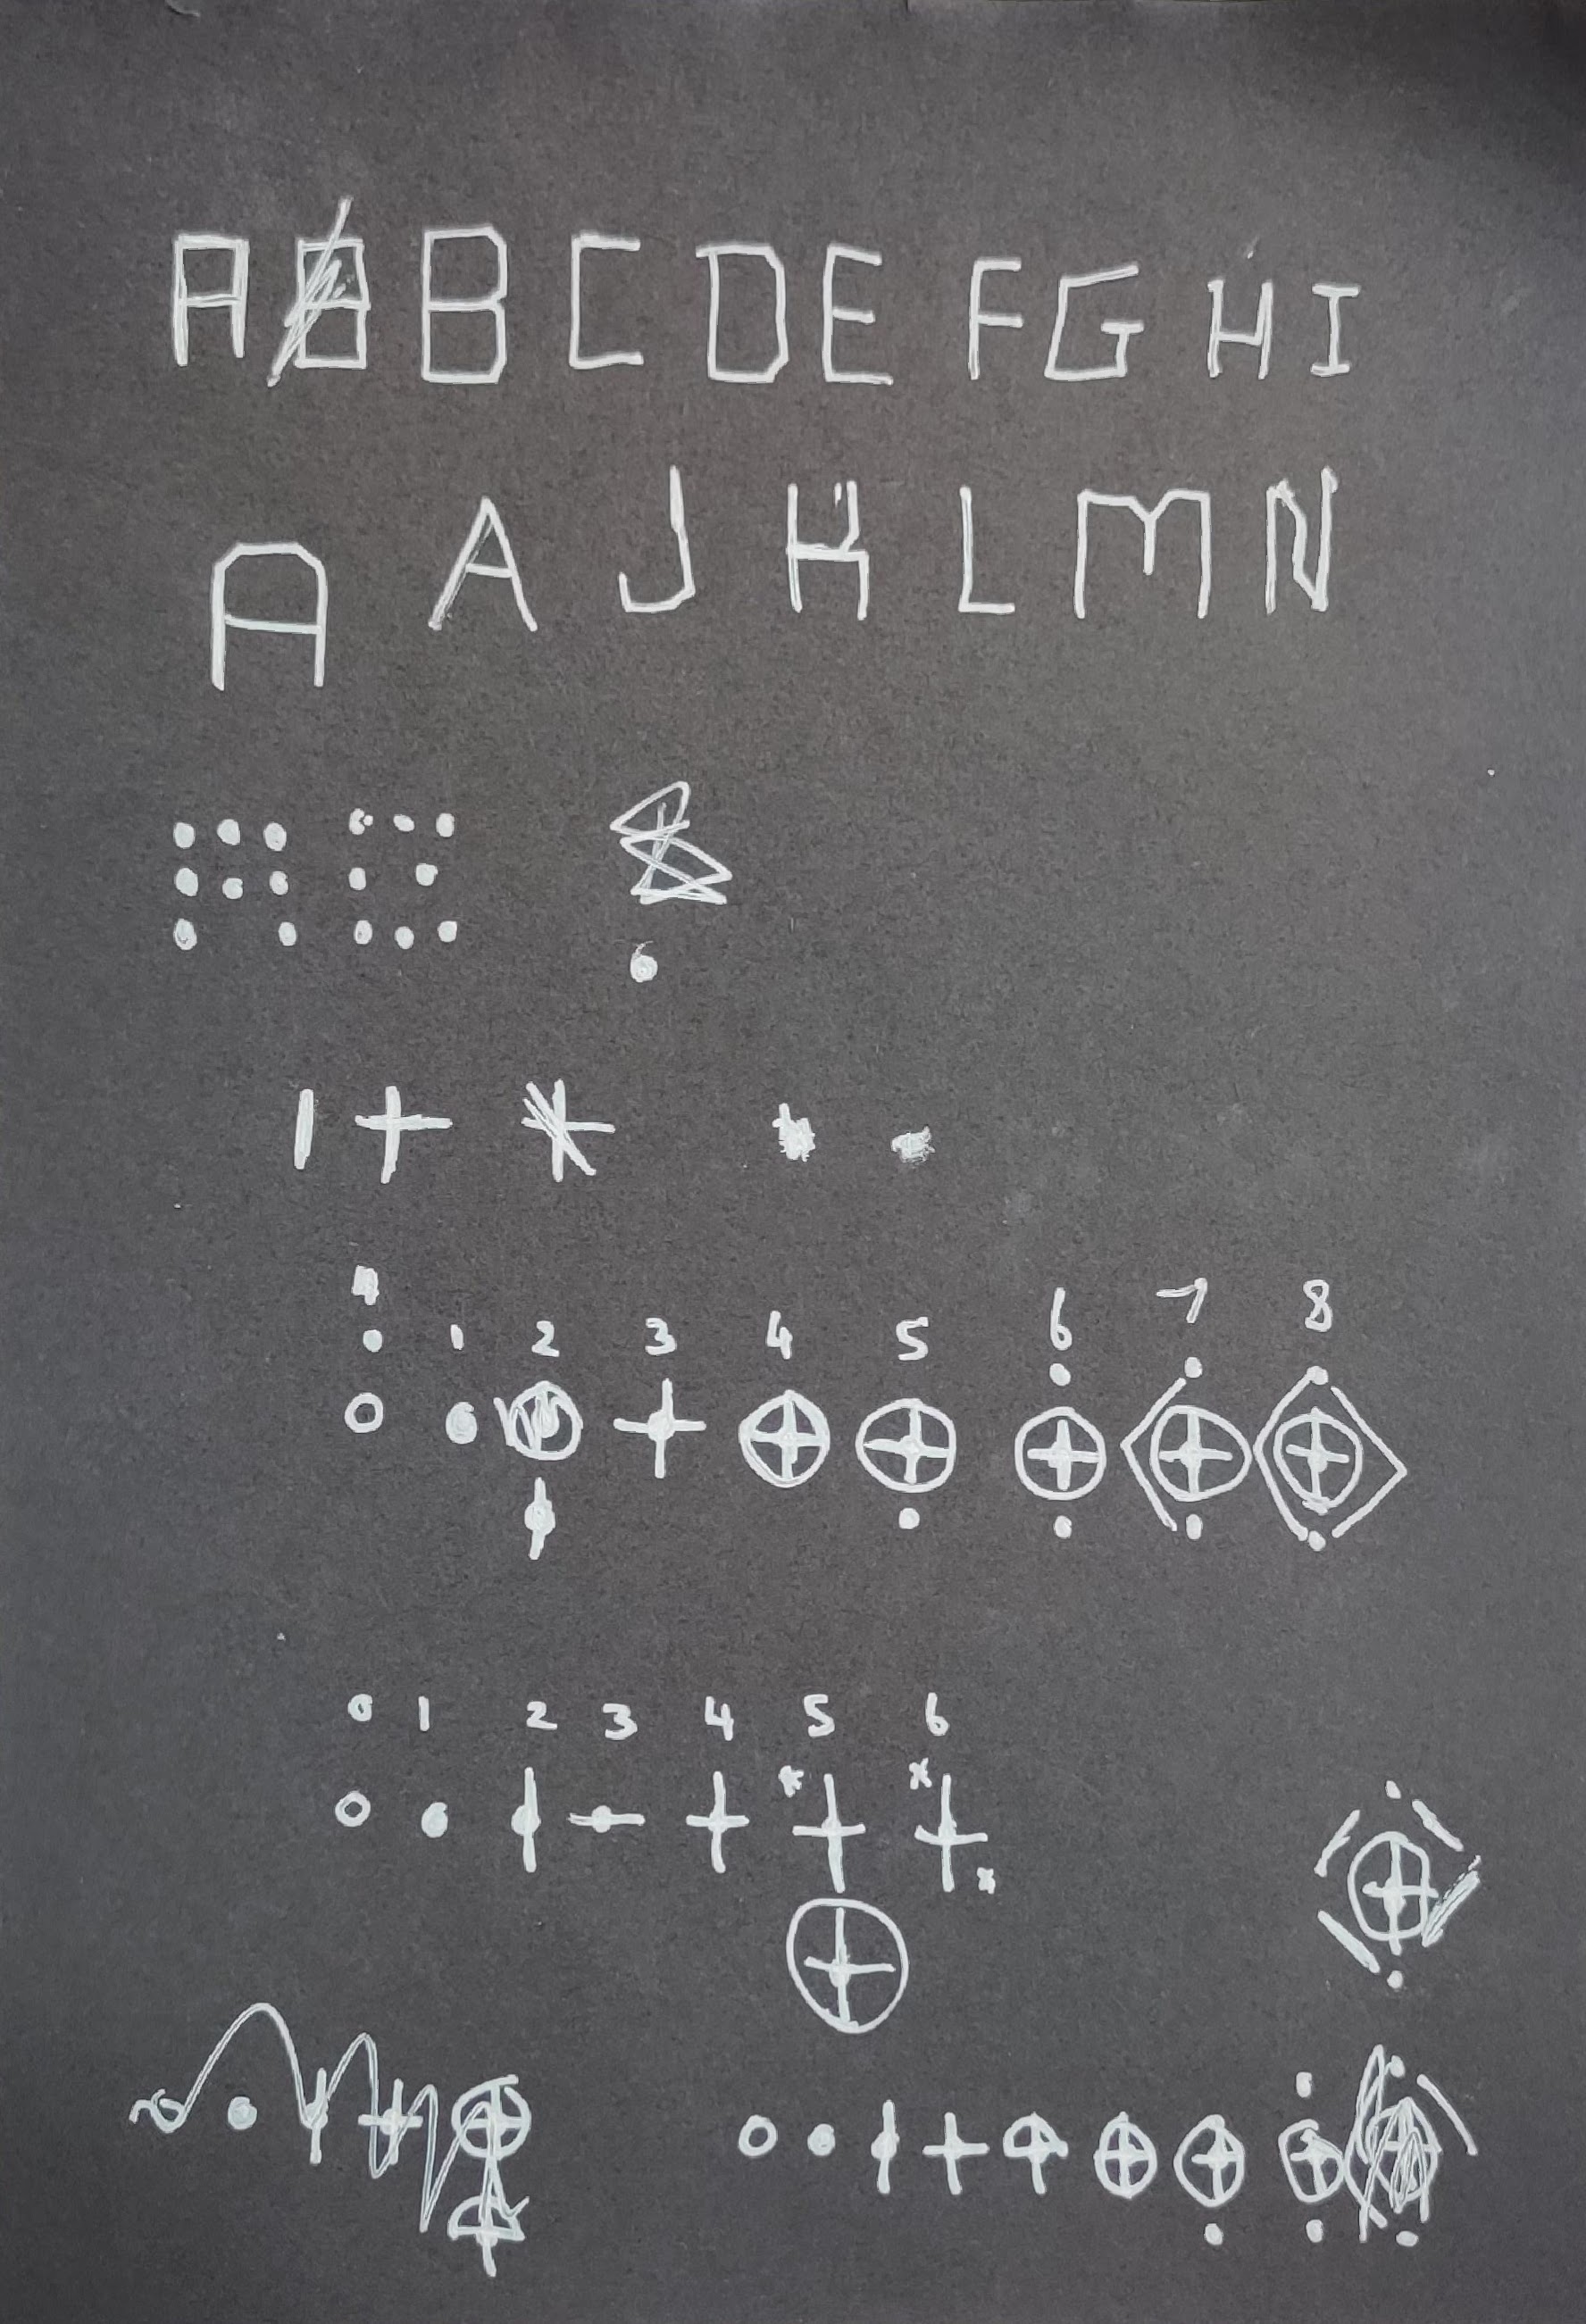 A B C D E F G H I
A A J K L M N
1 2 3 4 5 6 7 8
0 1 2 3 4 5 6